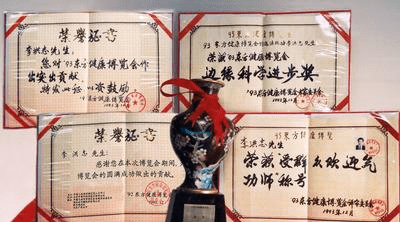 荣誉证书
李洪志先生:
您对'93东方健康博览会作
出突出贡献。
特发此证 以资鼓励。
'93东方健康博览会
1993年12月
李洪志先生:
荣获93东方健康博览会
边缘科学进步奖
1993年12月
荣誉证书
李洪志先生:
感谢您在本次博览会期间,
博览会的圆满成功做出的贡献。
93东方健康博览会
93东方健康博览
李洪志先生:
荣获受群众欢迎气
功师"称号
93东方健康博览会
1993年12月